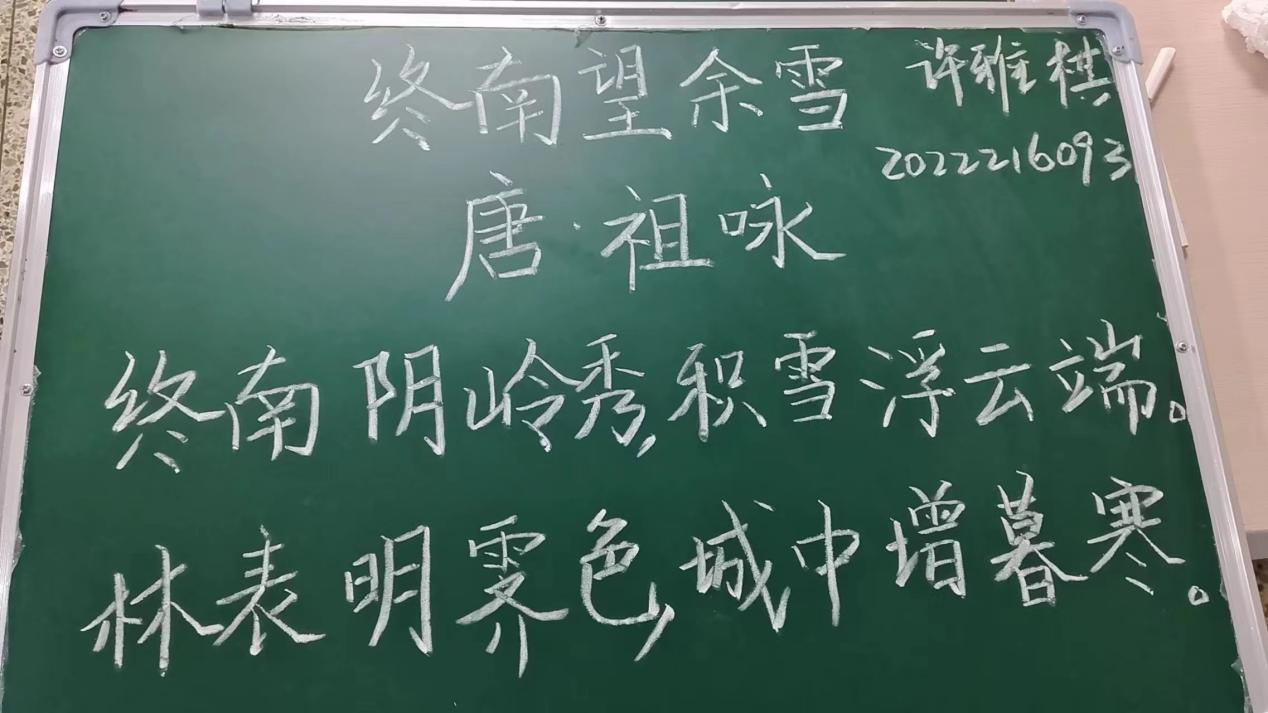 终南望余雪
许雅棋
2022216093
唐·祖咏
终南阴岭秀,积雪浮云端。
林表明霁色,城中增暮寒。